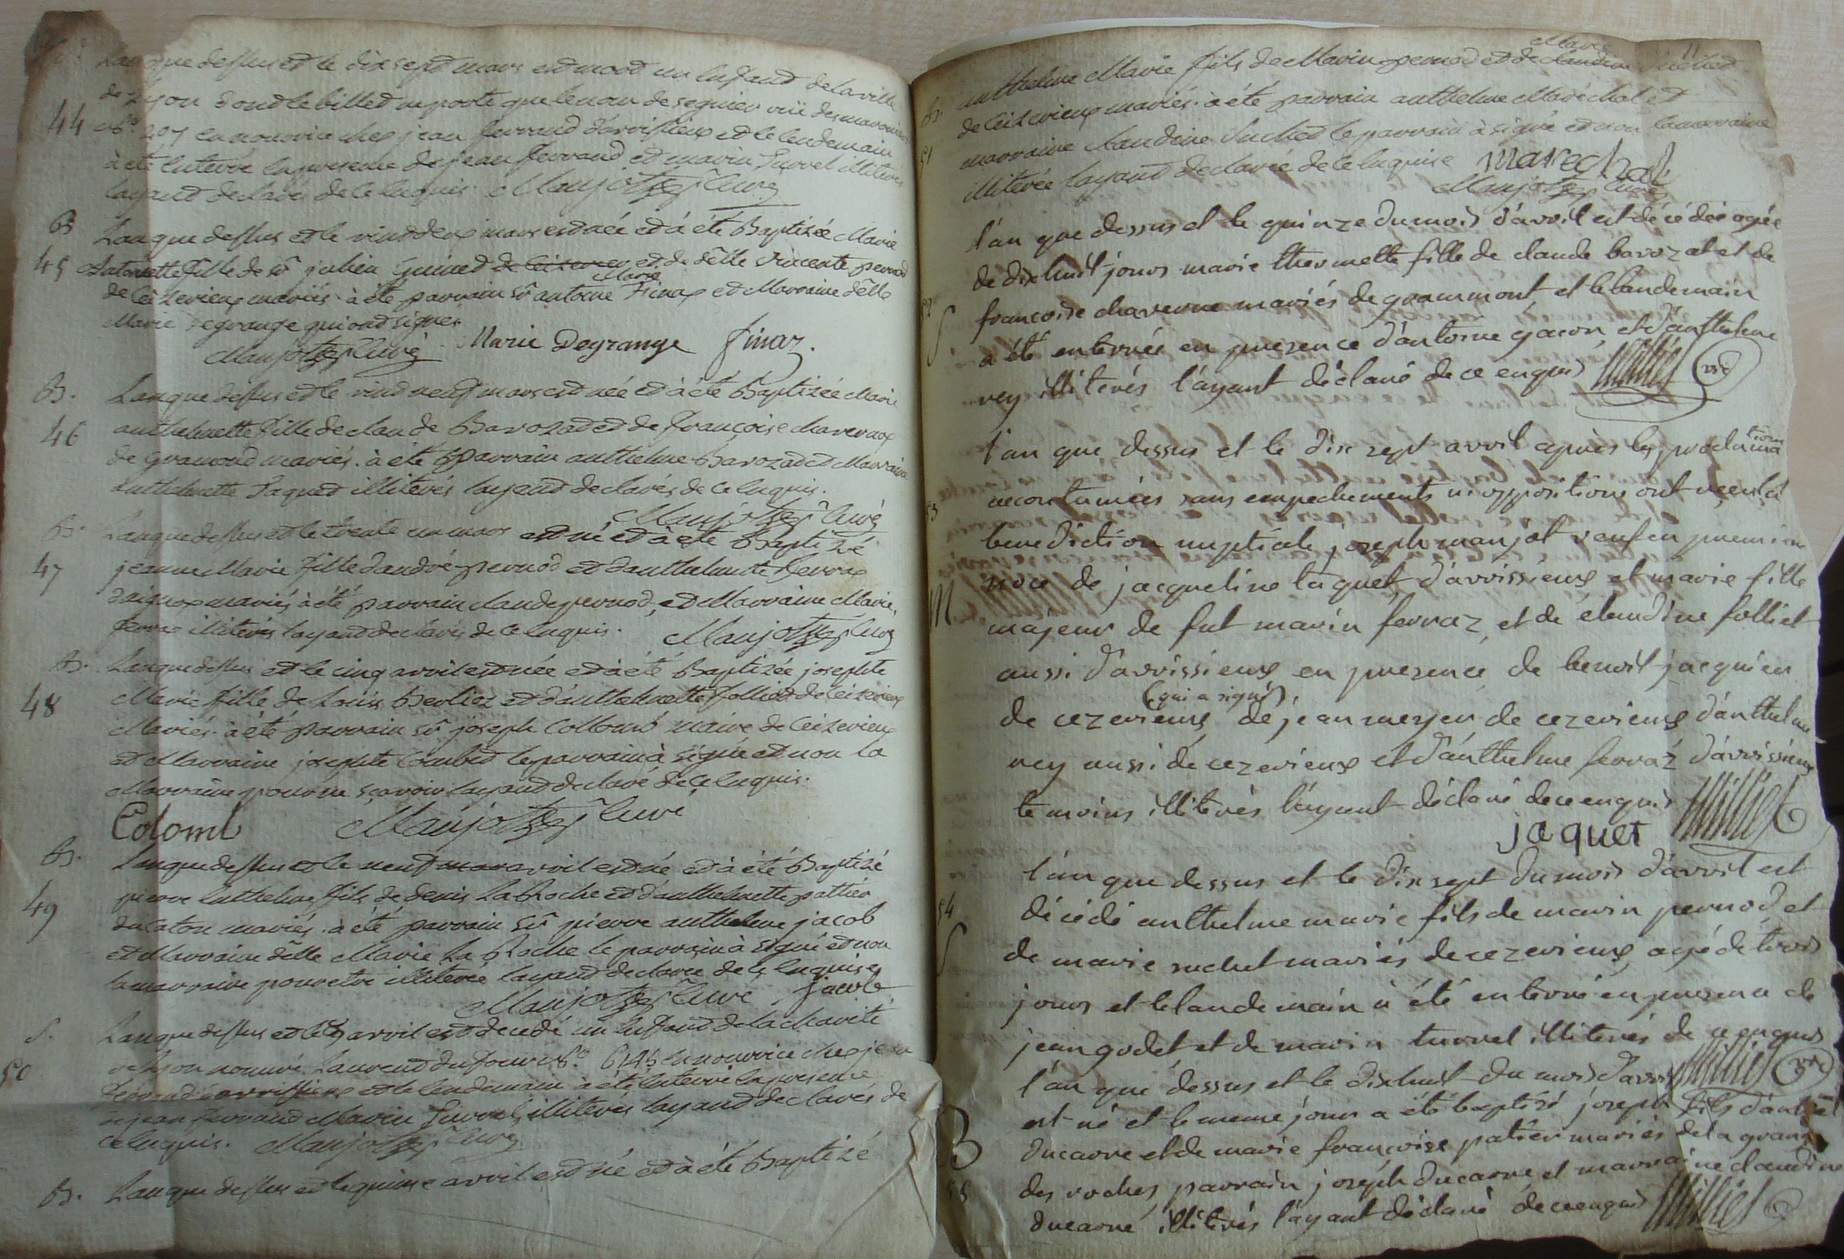 L'an que dessus et le dix sept mars est mort un enfant de la ville
de Lyon dont le billet porte que le nom de seguier rüe des
44
n° 207 en nourrice chez jean ferrand d'arvissieux et le lendemain
à été enterré en presence de jean ferrand et marin Turrel illiterés
layant declaré de ce enquis Manjot curé
B
L'an que dessus et le vint deux mars est née et à été Baptizée Marie
45 Antoinette fille de sr julien Guinet de Ceizerieu et de delle Vincente pernod
Marie
de Ceizerieux mariés à été parrain sr antoine Finaz et Marraine delle
Marie Degrange qui ont signés
Manjot curé Marie Degrange finaz.
B. L'an que dessus et le vint neuf mars est née et à été Baptizée Marie
46 anthelmette fille de claude Barozat et de Françoise chavernoz
de gramond mariés. à été Parrain anthelme Barozat et Marraine
anthelmette Paquet illiterés layand declarés de ce enquis.
Manjot curé
B. L'an que dessus et le trente un mars est né et à été Baptizé
47 jeanne Marie fille d'andré pernod et d'anthelmette ferroz
mariés à été parrain claude pernod, et Marraine Marie
ferroz illiterés layand declarés de ce enquis. Manjot curé
B. L'an que dessus et le cinq avril est née et à été Baptizée josephte
48 Marie fille de Louis Berlioz et d'anthelmette folliet de Ceizerieux
Mariés à été parrain sr joseph Collomb maire de Ceizerieux
et Marraine josephte Combet le parrain à signé et non la
Marraine pour ne sçavoir layand declaré de ce enquis.
Colomb Manjot curé
B. L'an que dessus et le neuf avril est né et à été Baptizé
49 pierre anthelme fils de denis La Roche et d'anthelmette pattier
mariés à été parrain sr pierre anthelme jacob
et Marraine delle Marie La Roche le parrain à signé et non
la marraine pour etre illiterée layand declarée de ce enquise
Manjot curé Jacob
S. L'an que dessus et le avril est decedé un Enfand de la charité
50 de Lyon nommé Laurent dufour n° 6145 en nourrice chez jean
ferrand d'arvissieux et le lendemain à été enterré en presence
de jean ferrand Marin Turrel illiterés layand declarés de
ce enquis. Manjot curé
B. L'an que dessus et le quinze avril est né et à été Baptizé
Marie
B. anthelme Marie fils de Marin pernod et de claudine suchet
51 de Ceizerieux mariés. à été parrain anthelme Maréchal et
marraine claudine Suchet le parrain à signé et non la marraine
illiterée layand declarée de ce enquise marechal
Manjot curé
l'an que dessus et le quinze du mois d'avril est décédée agée
de dix huit jours marie thermette fille de claude barozat et de
52 francoise chaverne mariés de grammont et le landemain
S a été enterrée en presence d'antoine gacon et d'anthelme
rey illiterés l'ayant déclaré de ce enquis Milliet vic
l'an que dessus et le dix sept avril après les proclama
tions
53 accoutumées sans empechements n'y oppositions ont reçu la
benediction nuptiale joseph manjot veuf en premiere
M noce de jacqueline taquet d'arvissieux et marie fille
majeur de fut marin ferraz et de claudine folliet
aussi d'arvissieux en presence de benoit jacquier
(qui a signé)
de cezerieux, de jean meyer de cezerieux d'anthelme
rey aussi de cezerieux et d'anthelme ferraz d'arvissieux
temoins illiterés l'ayant déclaré de ce enquis Milliet
jaquet
l'an que dessus et le dix sept du mois d'avril est
54 décédé anthelme marie fils de marin pernod et
S de marie suchet mariés de cezerieux agé de trois
jours et le lande main a été enterré en presence de
jean godet et de marin turrel illiterés de ce enquis
Milliet vic
l'an que dessus et le dix huit du mois d'avril
est né et le meme jour a été baptisé joseph fils d'andré
B ducarre et de marie françoise patier mariés de la grange
des roches parrain joseph ducarre et marraine claudine
55 ducarre illiterés l'ayant déclaré de ce enquis Milliet